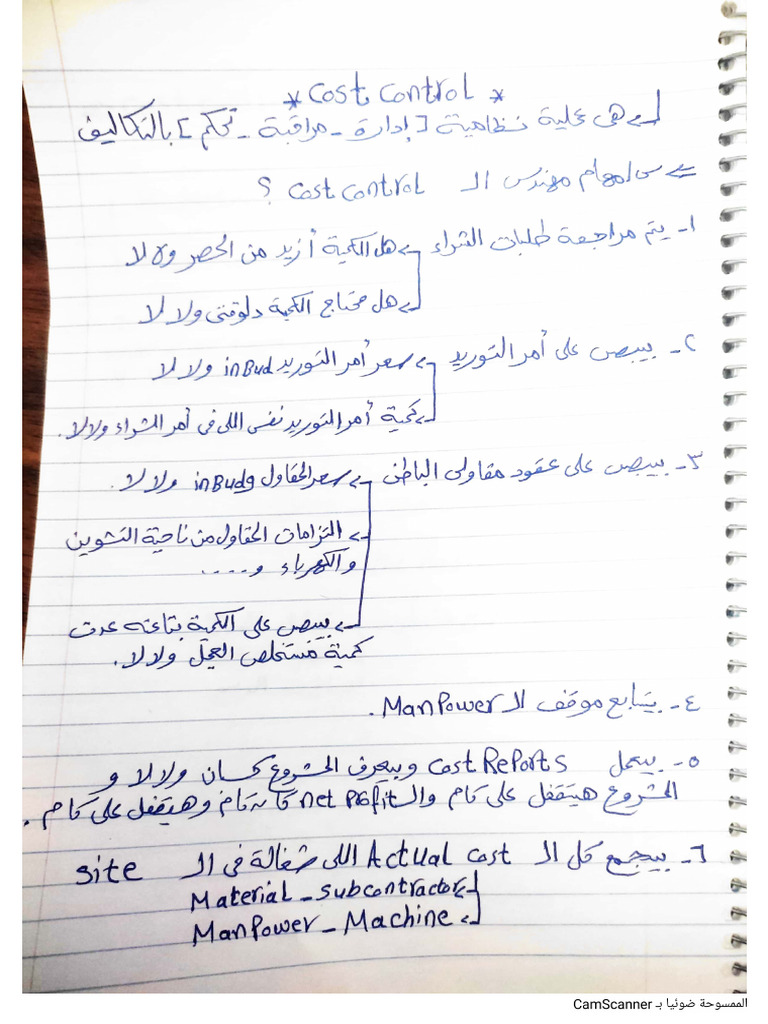 * Cost Control *
هى عملية نظامية [إدارة - مراقبة - تحكم] بالتكاليف
س/ مهام مهندس الـ Cost Control ؟
١- يتم مراجعة طلبات الشراء هل الكمية أزيد من الحصر ولا لا
هل محتاج الكمية دلوقتى ولا لا
٢- بيبص على أمر التوريد سعر أمر التوريد inBud ولا لا
كمية أمر التوريد نفس اللى فى أمر الشراء ولا لا.
٣- بيبص على عقود مقاولى الباطن سعر المقاول inBudg ولا لا.
التزامات المقاول من ناحية التشوين
والكهرباء و....
بيبص على الكمية بتاعته عدت
كمية مستخلص العميل ولا لا.
٤- بيتابع موقف الـ ManPower.
٥- بيعمل Cost Reports وبيعرف المشروع كسبان ولا لا و
المشروع هيتقفل على كام والـ net Profit كان كام وهيتقفل على كام.
٦- بيجمع كل الـ Actual cost اللى شغالة فى الـ site
Material - subcontractor
ManPower - Machine
الممسوحة ضوئيا بـ CamScanner